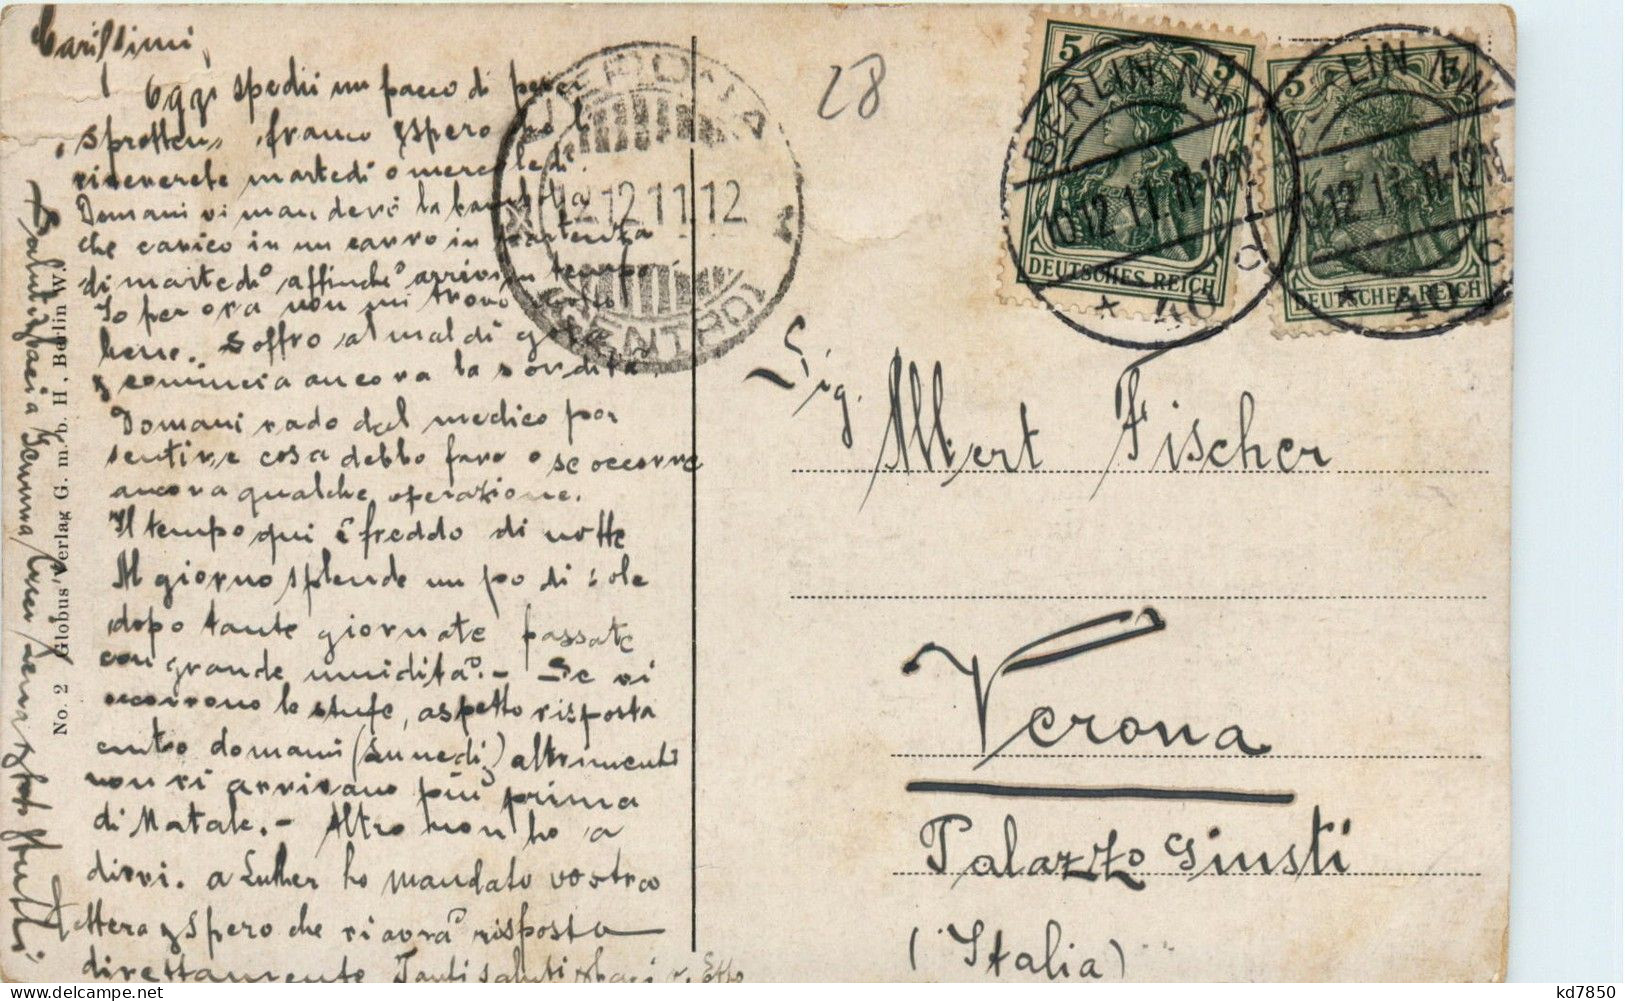 Carissimi,
Oggi spedii un pacco di
"sprotten" franco e spero
riceverete martedì o mercoledì.
Domani vi manderò la
che carico in un carro in partenza
di martedì affinchè arrivi in tempo.
Io per ora non mi trovo
bene. Soffro al mal di gola
e comincia ancora la sordità.
Domani vado dal medico per
sentire cosa debbo fare o se occorre
ancora qualche operazione.
Il tempo qui è freddo di notte
Al giorno splende un po di sole
dopo tante giornate passate
con grande umidità. - Se vi
occorrono le stufe, aspetto risposta
entro domani (Lunedì) altrimenti
non vi arrivano più prima
di Natale. - Altro non ho a
dirvi. a Luther ho mandato vostra
lettera e spero che vi avrà risposto
direttamente Tanti saluti e baci v. Otto
Saluti baci a Gemma
tutti
No. 2 Globus Verlag G. m. b. H. Berlin W.
12.12.11.12
28
5 5
DEUTSCHES REICH
BERLIN NW
10.12.11.11-12N
* 40 c
5 5
DEUTSCHES REICH
BERLIN NW
10.12.11.11-12N
* 40 c
Sig.
Albert Fischer
Verona
Palazzo Giusti
(Italia)
kd7850